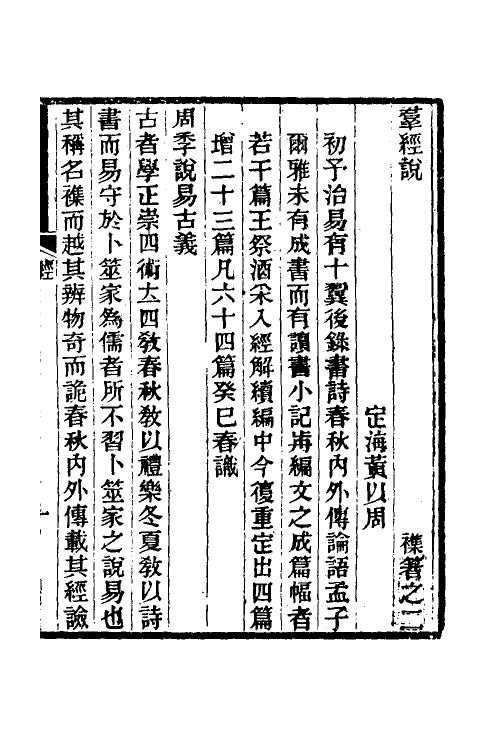 羣經說　襍箸之二
定海黃以周
初予治易有十翼後錄書詩春秋內外傳論語孟子
爾雅未有成書而有讀書小記再編文之成篇幅者
若干篇王祭酒采入經解續編中今復重定出四篇
增二十三篇凡六十四篇癸巳春識
周季說易古義
古者學正崇四術立四敎春秋敎以禮樂冬夏敎以詩
書而易守於卜筮家爲儒者所不習卜筮家之說易也
其稱名襍而越其辨物奇而詭春秋內外傳載其經諗
經